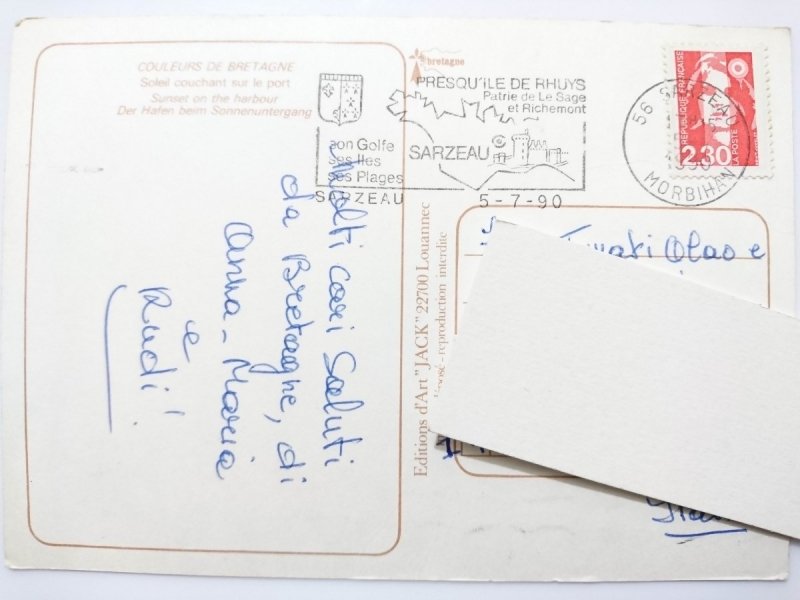 COULEURS DE BRETAGNE
Soleil couchant sur le port
Sunset on the harbour
Der Hafen beim Sonnenuntergang
bretagne
PRESQU'ILE DE RHUYS
Patrie de Le Sage
et Richemont
son Golfe
ses Iles
ses Plages
SARZEAU
SARZEAU
5-7-90
56 SARZEAU
MORBIHAN
REPUBLIQUE FRANÇAISE
2,30
LA POSTE
Molti cari Saluti
da Bretagne, di
Anna-Maria
e
Rudi!
Editions d'Art "JACK" 22700 Louannec
reproduction interdite
Olao e